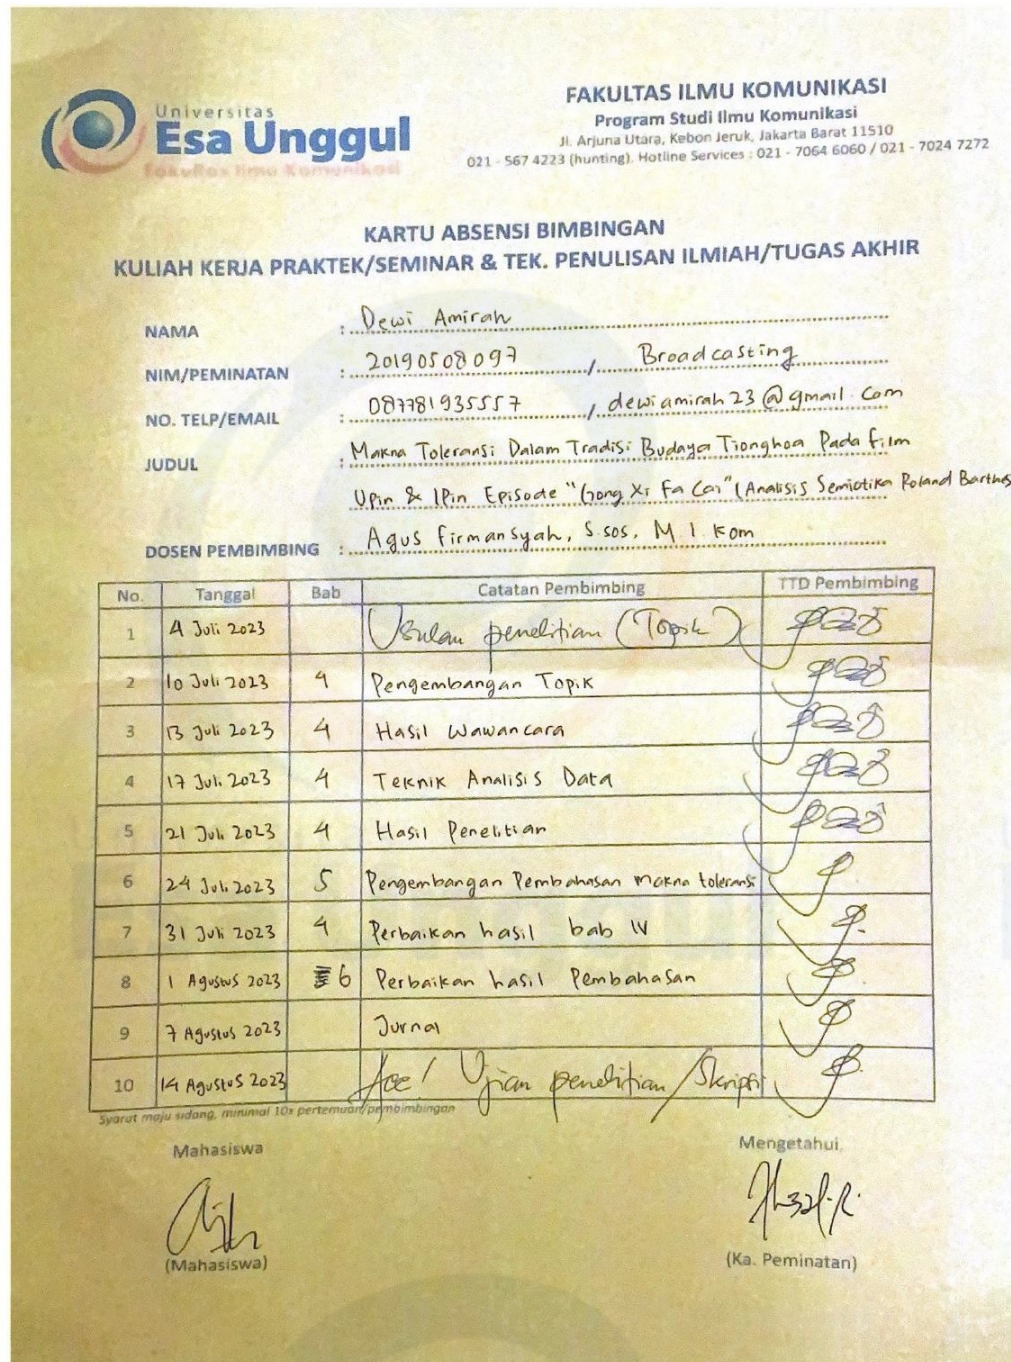 Universitas
Esa Unggul
Fakultas Ilmu Komunikasi
FAKULTAS ILMU KOMUNIKASI
Program Studi Ilmu Komunikasi
Jl. Arjuna Utara, Kebon Jeruk, Jakarta Barat 11510
021 - 567 4223 (hunting). Hotline Services : 021 - 7064 6060 / 021 - 7024 7272
KARTU ABSENSI BIMBINGAN
KULIAH KERJA PRAKTEK/SEMINAR & TEK. PENULISAN ILMIAH/TUGAS AKHIR
NAMA : Dewi Amirah
NIM/PEMINATAN : 20190508097 / Broadcasting
NO. TELP/EMAIL : 087781935557 / dewiamirah23@gmail.com
JUDUL : Makna Toleransi Dalam Tradisi Budaya Tionghoa Pada film
Upin & Ipin Episode "Gong Xi Fa Cai" (Analisis Semiotika Roland Barthes
DOSEN PEMBIMBING : Agus Firmansyah, S.sos, M.I.Kom
No. Tanggal Bab Catatan Pembimbing TTD Pembimbing
1 4 Juli 2023 Usulan penelitian (Topik)
2 10 Juli 2023 4 Pengembangan Topik
3 13 Juli 2023 4 Hasil Wawancara
4 17 Juli 2023 4 Teknik Analisis Data
5 21 Juli 2023 4 Hasil Penelitian
6 24 Juli 2023 5 Pengembangan Pembahasan makna toleransi
7 31 Juli 2023 4 Perbaikan hasil bab IV
8 1 Agustus 2023 6 Perbaikan hasil Pembahasan
9 7 Agustus 2023 Jurnal
10 14 Agustus 2023 Acc! Ujian penelitian/Skripsi
Syarat maju sidang, minimal 10x pertemuan/pembimbingan
Mahasiswa Mengetahui,
(Mahasiswa) (Ka. Peminatan)